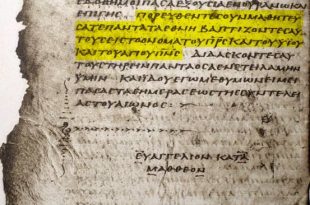 ΕΔΟΘΗΜΟΙΠΑΣΑΕΞΟΥΣΙΑΕΝΟΥΡΑΝΩΚΑΙ
ΕΠΙΓΗΣ ΠΟΡΕΥΘΕΝΤΕΣΟΥΝΜΑΘΗΤΕΥ
ΣΑΤΕΠΑΝΤΑΤΑΕΘΝΗ ΒΑΠΤΙΖΟΝΤΕΣΑΥ
ΤΟΥΣΕΙΣΤΟΟΝΟΜΑΤΟΥΠΡΣΚΑΙΤΟΥΥΙΟΥ
ΚΑΙΤΟΥΑΓΙΟΥΠΝΣ ΔΙΔΑΣΚΟΝΤΕΣΑΥ
ΤΟΥΣΤΗΡΕΙΝΠΑΝΤΑΟΣΑΕΝΕΤΕΙΛΑΜΗΝ
ΥΜΙΝ ΚΑΙΙΔΟΥΕΓΩΜΕΘΥΜΩΝΕΙΜΕΙ
ΠΑΣΑΣΤΑΣΗΜΕΡΑΣΕΩΣΤΗΣΣΥΝΤΕΛΕΙ
ΑΣΤΟΥΑΙΩΝΟΣ
ΕΥΑΓΓΕΛΙΟΝ ΚΑΤΑ
ΜΑΘΘΕΟΝ